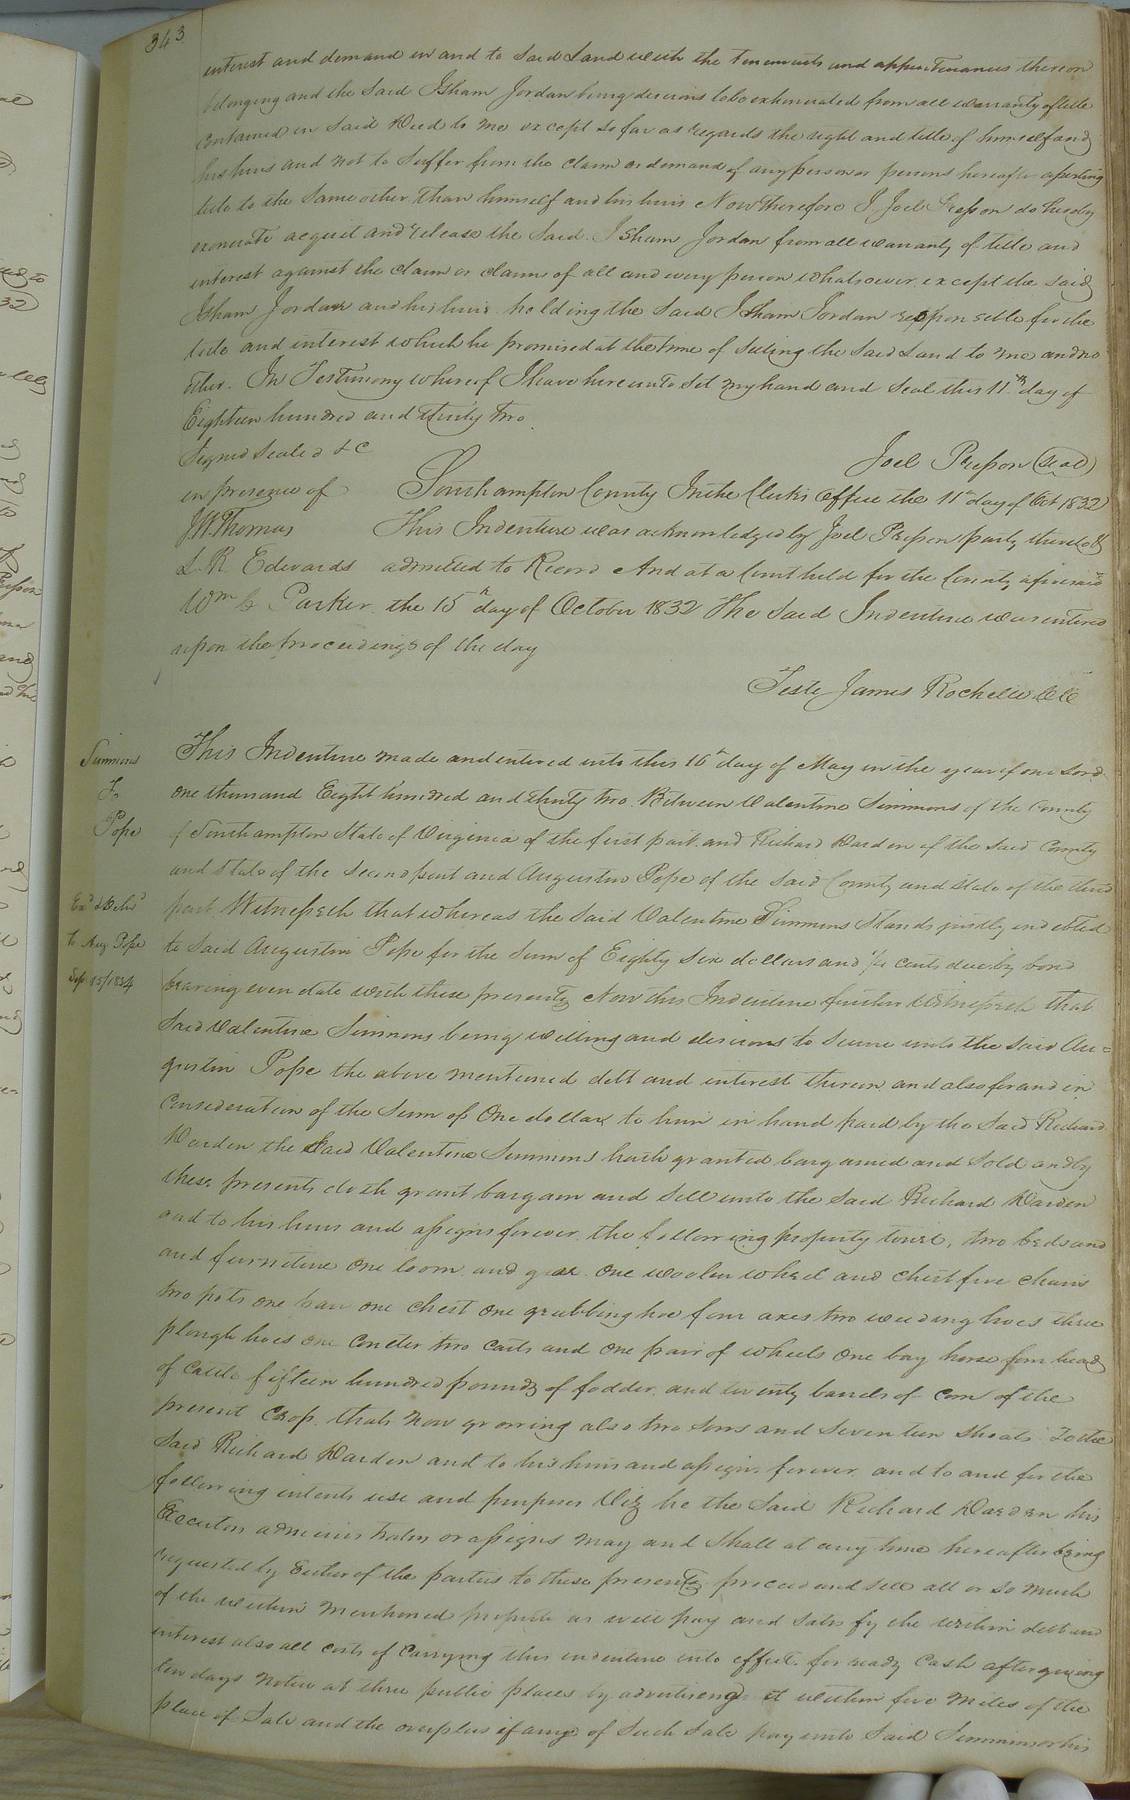 343
interest and demand in and to said Land with the tenements and appurtenances thereon
belonging and the said Isham Jordan being desirous to be exhonorated from all warranty of title
contained in said Deed to me except so far as regards the right and title of himself and
his heirs and not to suffer from the claim or demand of any person or persons hereafter asserting
title to the same other than himself and his heirs Now Therefore I Joel Presson do hereby
exonerate acquit and release the said Isham Jordan from all warranty of title and
interest against the claim or claims of all and every person whatsoever except the said
Isham Jordan and his heirs holding the said Isham Jordan responsible for the
title and interest which he promised at the time of selling the said Land to me and no
other. In Testimony whereof I have hereunto set my hand and seal this 11th day of
Eighteen hundred and thirty two.
Signed sealed &c
Joel Presson (Seal)
in presence of
J W Thomas
L. R. Edwards
Wm C Parker
Southampton County In the Clerks Office the 11th day of Oct 1832
This Indenture was acknowledged by Joel Presson party thereto &
admitted to Record And at a Court held for the County aforesaid
the 15th day of October 1832 The said Indenture was entered
upon the proceedings of the day
Teste James Rochelle CC
Simmons
To
Pope
Exd & Delivd
to Aug Pope
Sep 15/1834
This Indenture made and entered into this 16th day of May in the year of our Lord
one thousand Eight hundred and thirty two Between Valentine Simmons of the County
of Southampton State of Virginia of the first part and Richard Darden of the said County
and State of the second part and Augustin Pope of the said County and State of the third
part Witnesseth that whereas the said Valentine Simmons stands justly indebted
to said Augustin Pope for the sum of Eighty six dollars and cents due by bond
bearing even date with these presents Now this Indenture further Witnesseth that
said Valentine Simmons being willing and desirous to secure unto the said Au=
gustin Pope the above mentioned debt and interest therein and also for and in
consideration of the sum of One dollar to him in hand paid by the said Richard
Darden the said Valentine Simmons hath granted bargained and sold and by
these presents doth grant bargain and sell unto the said Richard Darden
and to his heirs and assigns forever the following property towit, two beds and
and furniture one loom and gear one woolen wheel and chest five chairs
two pots one one chest one grubbing hoe four axes two weeding hoes three
plough hoes one coulter two carts and one pair of wheels One bay horse four head
of cattle fifteen hundred pounds of fodder and twenty barrels of corn of the
present Crop thats now growing also two sows and seventeen shoats To the
said Richard Darden and to his heirs and assigns forever and to and for the
following intents use and purposes Viz he the said Richard Darden his
Executors administrators or assigns may and shall at any time hereafter being
requested by Either of the parties to these presents proceed and sell all or so much
of the within mentioned property as will pay and satisfy the within debt and
interest also all costs of Carrying this indenture into effect for ready Cash after giving
ten days notice at three public places by advertising it within five miles of the
place of Sale and the overplus if any of such sale pay unto said Simmons or his